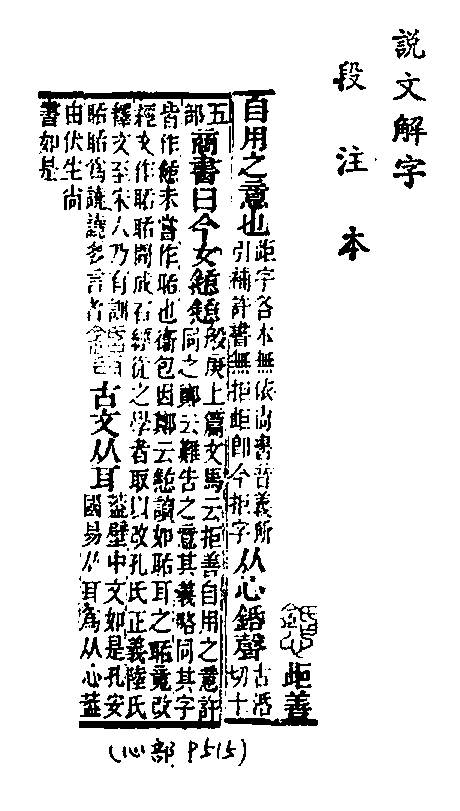 説文解字
段注本
歫善
自用之意也歫字各本無依尚書音義所引補許書無拒歫卽今拒字从心銛聲古活切十
五部商書曰今女懖懖般庚上篇文馬云拒善自用之意許同之鄭云難告之意其義略同其字
皆作懖未嘗作聒也衞包因鄭云懖讀如聒耳之聒竟改
經文作聒聒開成石經從之學者取以改孔氏正義陸氏
釋文至宋人乃有訓聒聒爲譊譊多言者古文从耳葢壁中文如是孔安國易从耳爲从心葢
由伏生尚書如是
(心部 P515)